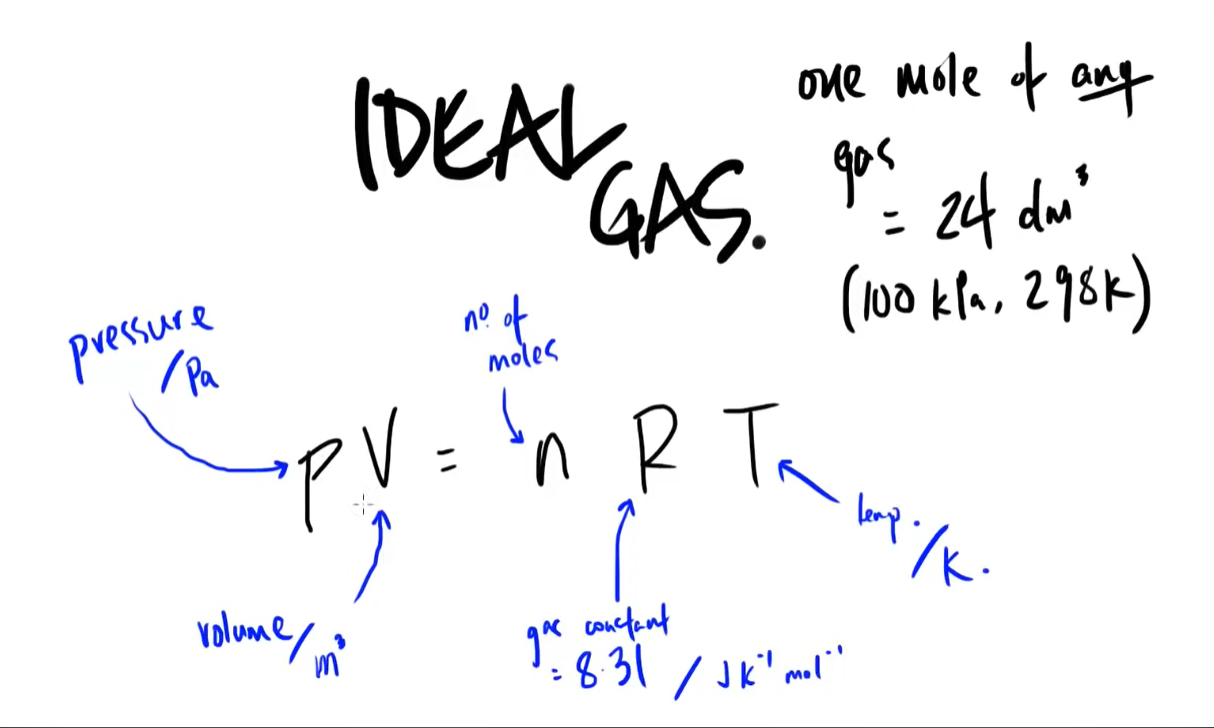 IDEAL
GAS.
one mole of any
gas
= 24 dm³
(100 kPa, 298K)
pressure
/Pa
nº. of
moles
pV = n R T
temp.
/K.
volume/m³
gas constant
= 8.31 / J K⁻¹ mol⁻¹